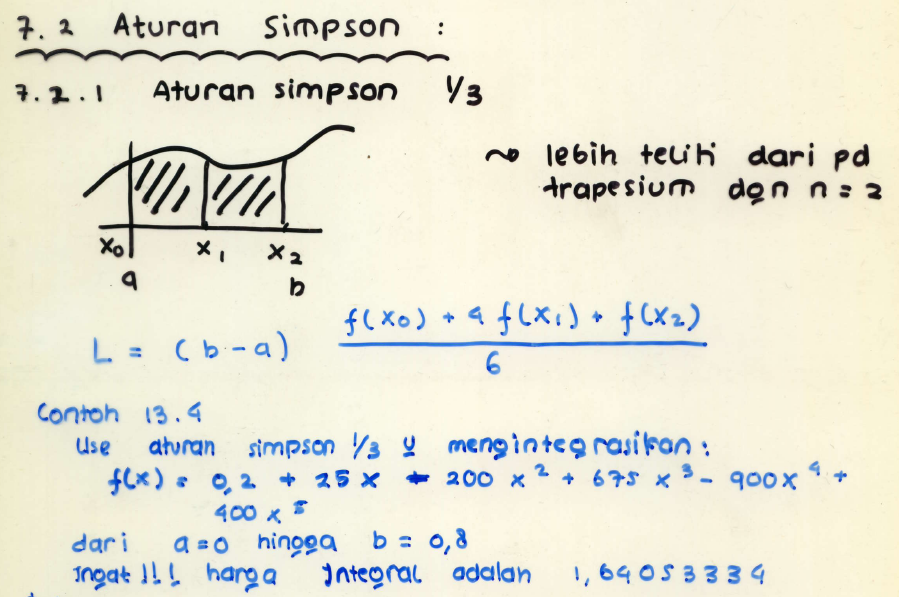 7.2 Aturan Simpson :
7.2.1 Aturan simpson 1/3
~> lebih teliti dari pd
trapesium dgn n = 2
x₀ x₁ x₂
a b
L = (b - a) (f(x₀) + 4 f(x₁) + f(x₂)) / 6
Contoh 13.4
Use aturan simpson 1/3 u mengintegrasikan :
f(x) = 0,2 + 25 x - 200 x² + 675 x³ - 900x⁴ +
400 x⁵
dari a = 0 hingga b = 0,8
Ingat !!! harga Integral adalah 1,64053334